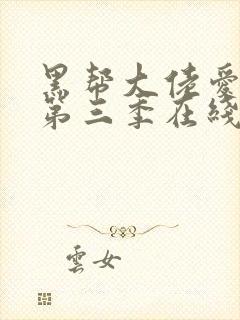 黑帮大佬爱
第三季在綫
雲女